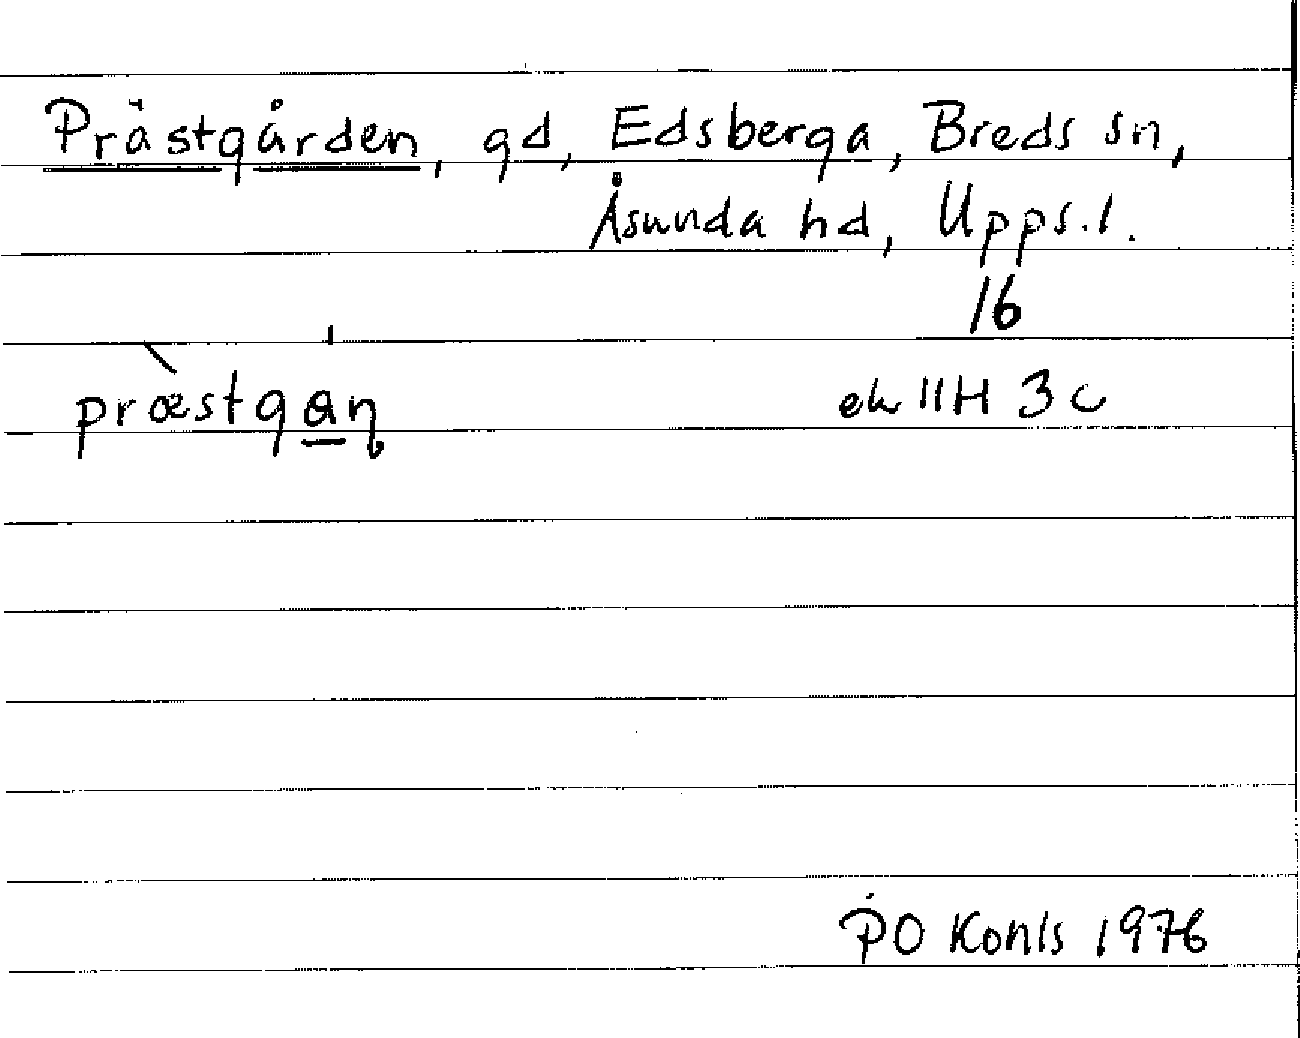 Prästgården, gd, Edsberga, Breds sn,
Åsunda hd, Upps.l.
16
præstgaɳ
ek 11H 3c
PO Konls 1976